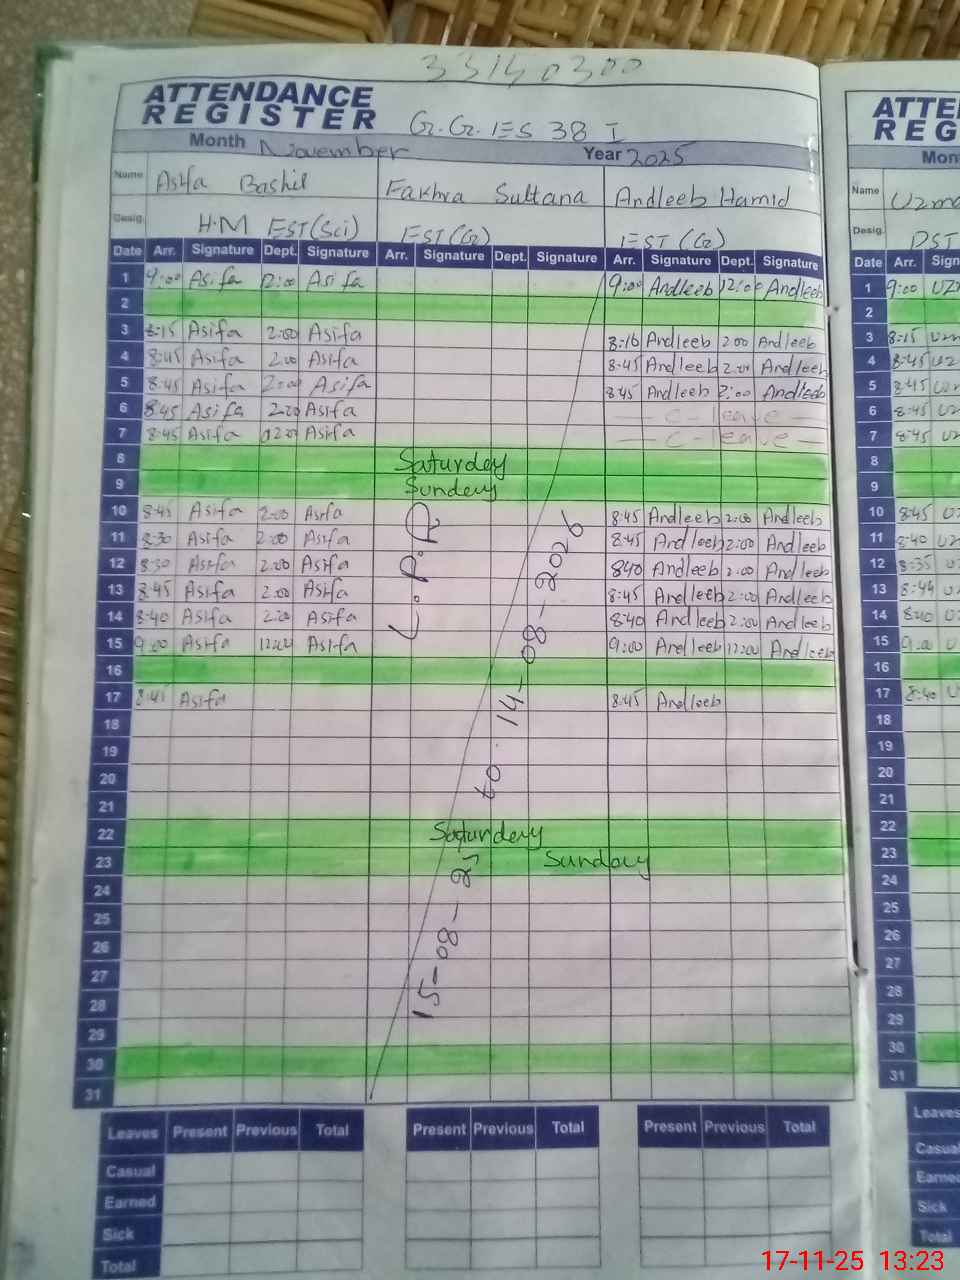 33140300
ATTENDANCE
REGISTER
G.G. IES 38 I
Month November Year 2025
Name Asifa Bashir Fakhra Sultana Andleeb Hamid
Desig. H.M EST(Sci) EST(G) EST(G)
Date Arr. Signature Dept. Signature Arr. Signature Dept. Signature Arr. Signature Dept. Signature
1 9:00 Asifa 12:00 Asifa 9:00 Andleeb 12:00 Andleeb
2
3 8:15 Asifa 2:00 Asifa 8:16 Andleeb 2:00 Andleeb
4 8:45 Asifa 2:00 Asifa 8:45 Andleeb 2:00 Andleeb
5 8:45 Asifa 2:00 Asifa 8:45 Andleeb 2:00 Andleeb
6 8:45 Asifa 2:00 Asifa — C - leave —
7 8:45 Asifa 02:00 Asifa — C - leave —
8 Saturday
9 Sunday
10 8:45 Asifa 2:00 Asifa 8:45 Andleeb 2:00 Andleeb
11 8:30 Asifa 2:00 Asifa 8:45 Andleeb 2:00 Andleeb
12 8:30 Asifa 2:00 Asifa 840 Andleeb 2:00 Andleeb
13 8:45 Asifa 2:00 Asifa 8:45 Andleeb 2:00 Andleeb
14 8:40 Asifa 2:00 Asifa 8:40 Andleeb 2:00 Andleeb
15 9:00 Asifa 12:00 Asifa 9:00 Andleeb 12:00 Andleeb
16
17 8:45 Asifa 8:45 Andleeb
18
19
20
21
22 Saturday
23 Sunday
24
25
26
27
28
29
30
31
L.P.R
15-08-25 to 14-08-2026
Leaves Present Previous Total Present Previous Total Present Previous Total
Casual
Earned
Sick
Total
ATTE
REG
Mon
Name Uzma
Desig. PST
Date Arr. Sign
1 9:00 Uz
2
3 8:15
4 8:45 Uz
5 8:45
6 8:45
7 8:45 Uz
8
9
10 8:45
11 8:40
12 8:35
13 8:44
14 8:40
15 9:00
16
17 8:40
18
19
20
21
22
23
24
25
26
27
28
29
30
31
Leaves
Casual
Earne
Sick
Total
17-11-25 13:23